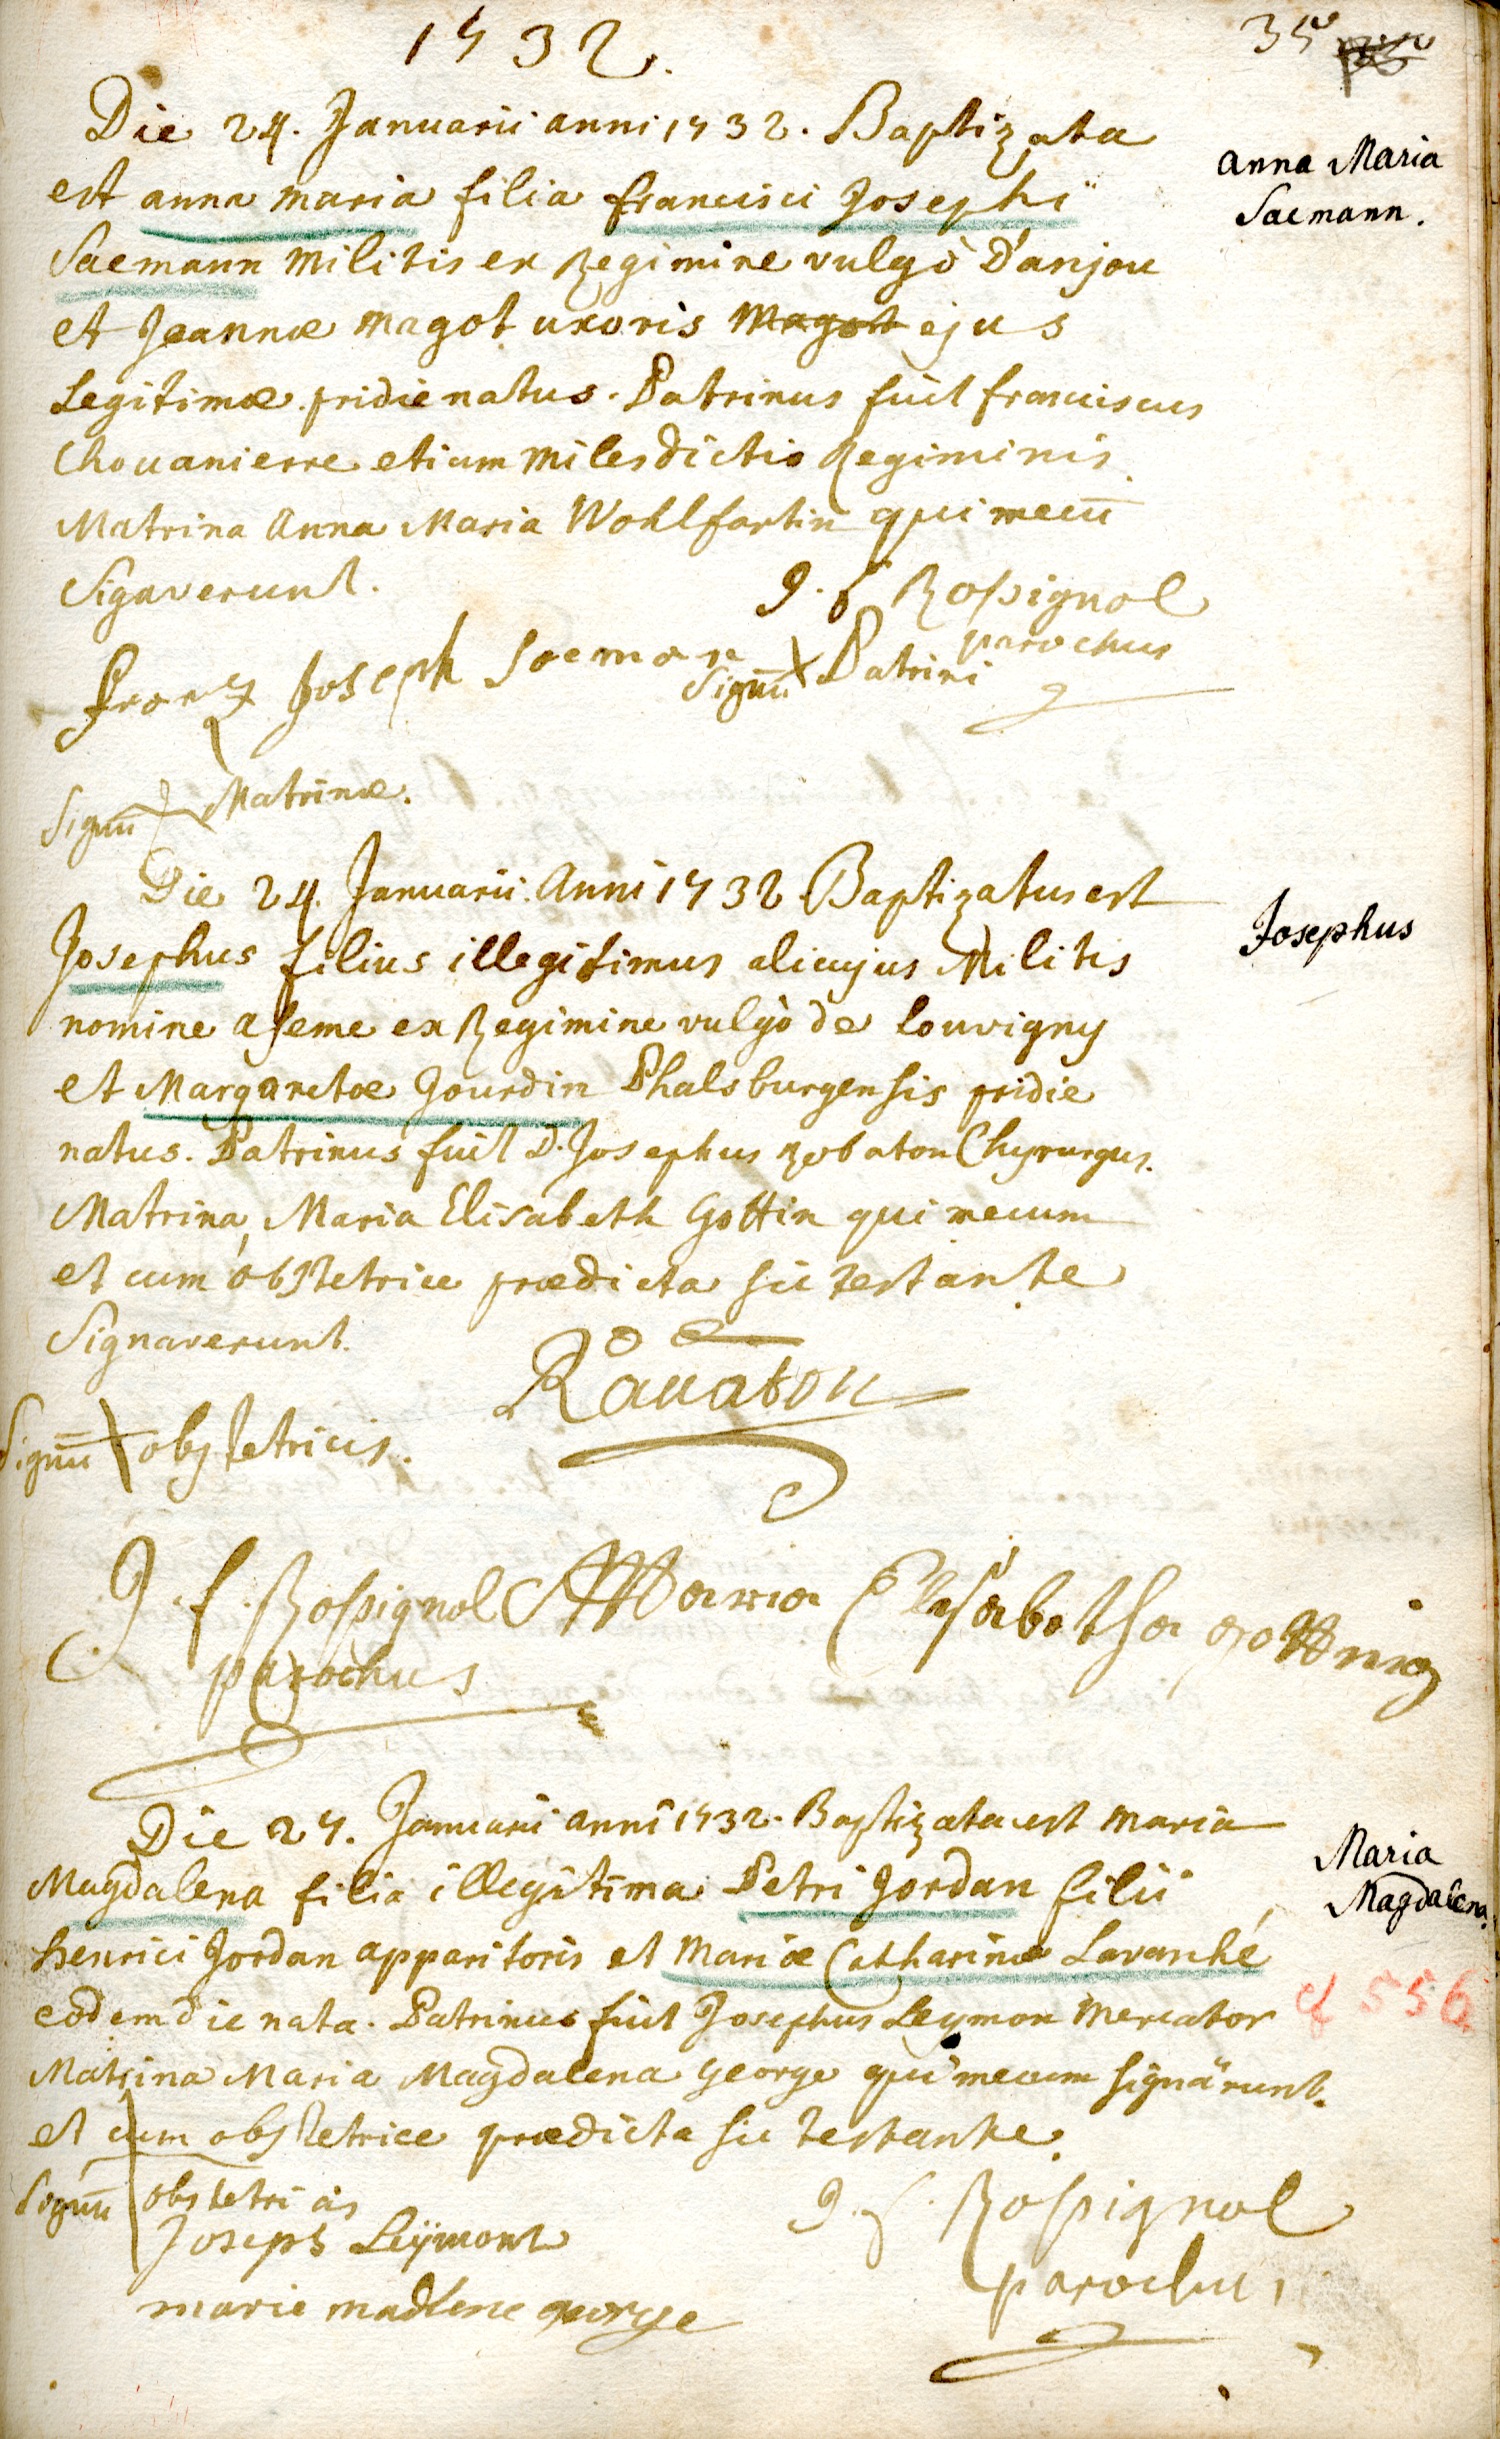 1732.
35
Die 24. Januarii anni 1732. Baptizata
anna Maria
Saemann.
est anna maria filia francisci Josephi
Saemann militis ex Regimine vulgò D'anjou
et Jeannæ magot uxoris Magot ejus
Legitimæ pridie natus. Patrinus fuit franciscus
Chouanierre etiam miles dicti Regiminis
Matrina Anna Maria Wohlfartin qui mecū
Sigaverunt.
J. f Rossignol
parochus
Franz Joseph Soeman
Signū Patrini
Signū Matrinæ.
Die 24. Januarii Anni 1732 Baptizatus est
Josephus
Josephus filius illegitimus alicujus Militis
nomine aseme ex Regimine vulgò de Louvigny
et Margaretæ Jourdin Phalsburgensis pridie
natus. Patrinus fuit D. Josephus Robaton Chyrurgus.
Matrina Maria Elisabeth Gottin qui mecum
et cum obstetrice prædicta sic testante
Signaverunt.
Ravaton
Signū obstetricis.
J. f. Rossignol Maria Elisabetha gottinig
parochus
Die 27. Januarii anni 1732. Baptizata est Maria
Maria
Magdalena.
Magdalena filia illegitima Petri Jordan filii
henrici Jordan apparitoris et Mariæ Catharinæ Lavanhé
cf 556
eodem die nata. Patrinus fuit Josephus Leymon Mercator
Matrina Maria Magdalena George qui mecum signârunt.
et cum obstetrice prædicta sic testante.
Signū obstetricis
J. f. Rossignol
Joseph Leÿmont
parochus
marie madlene george